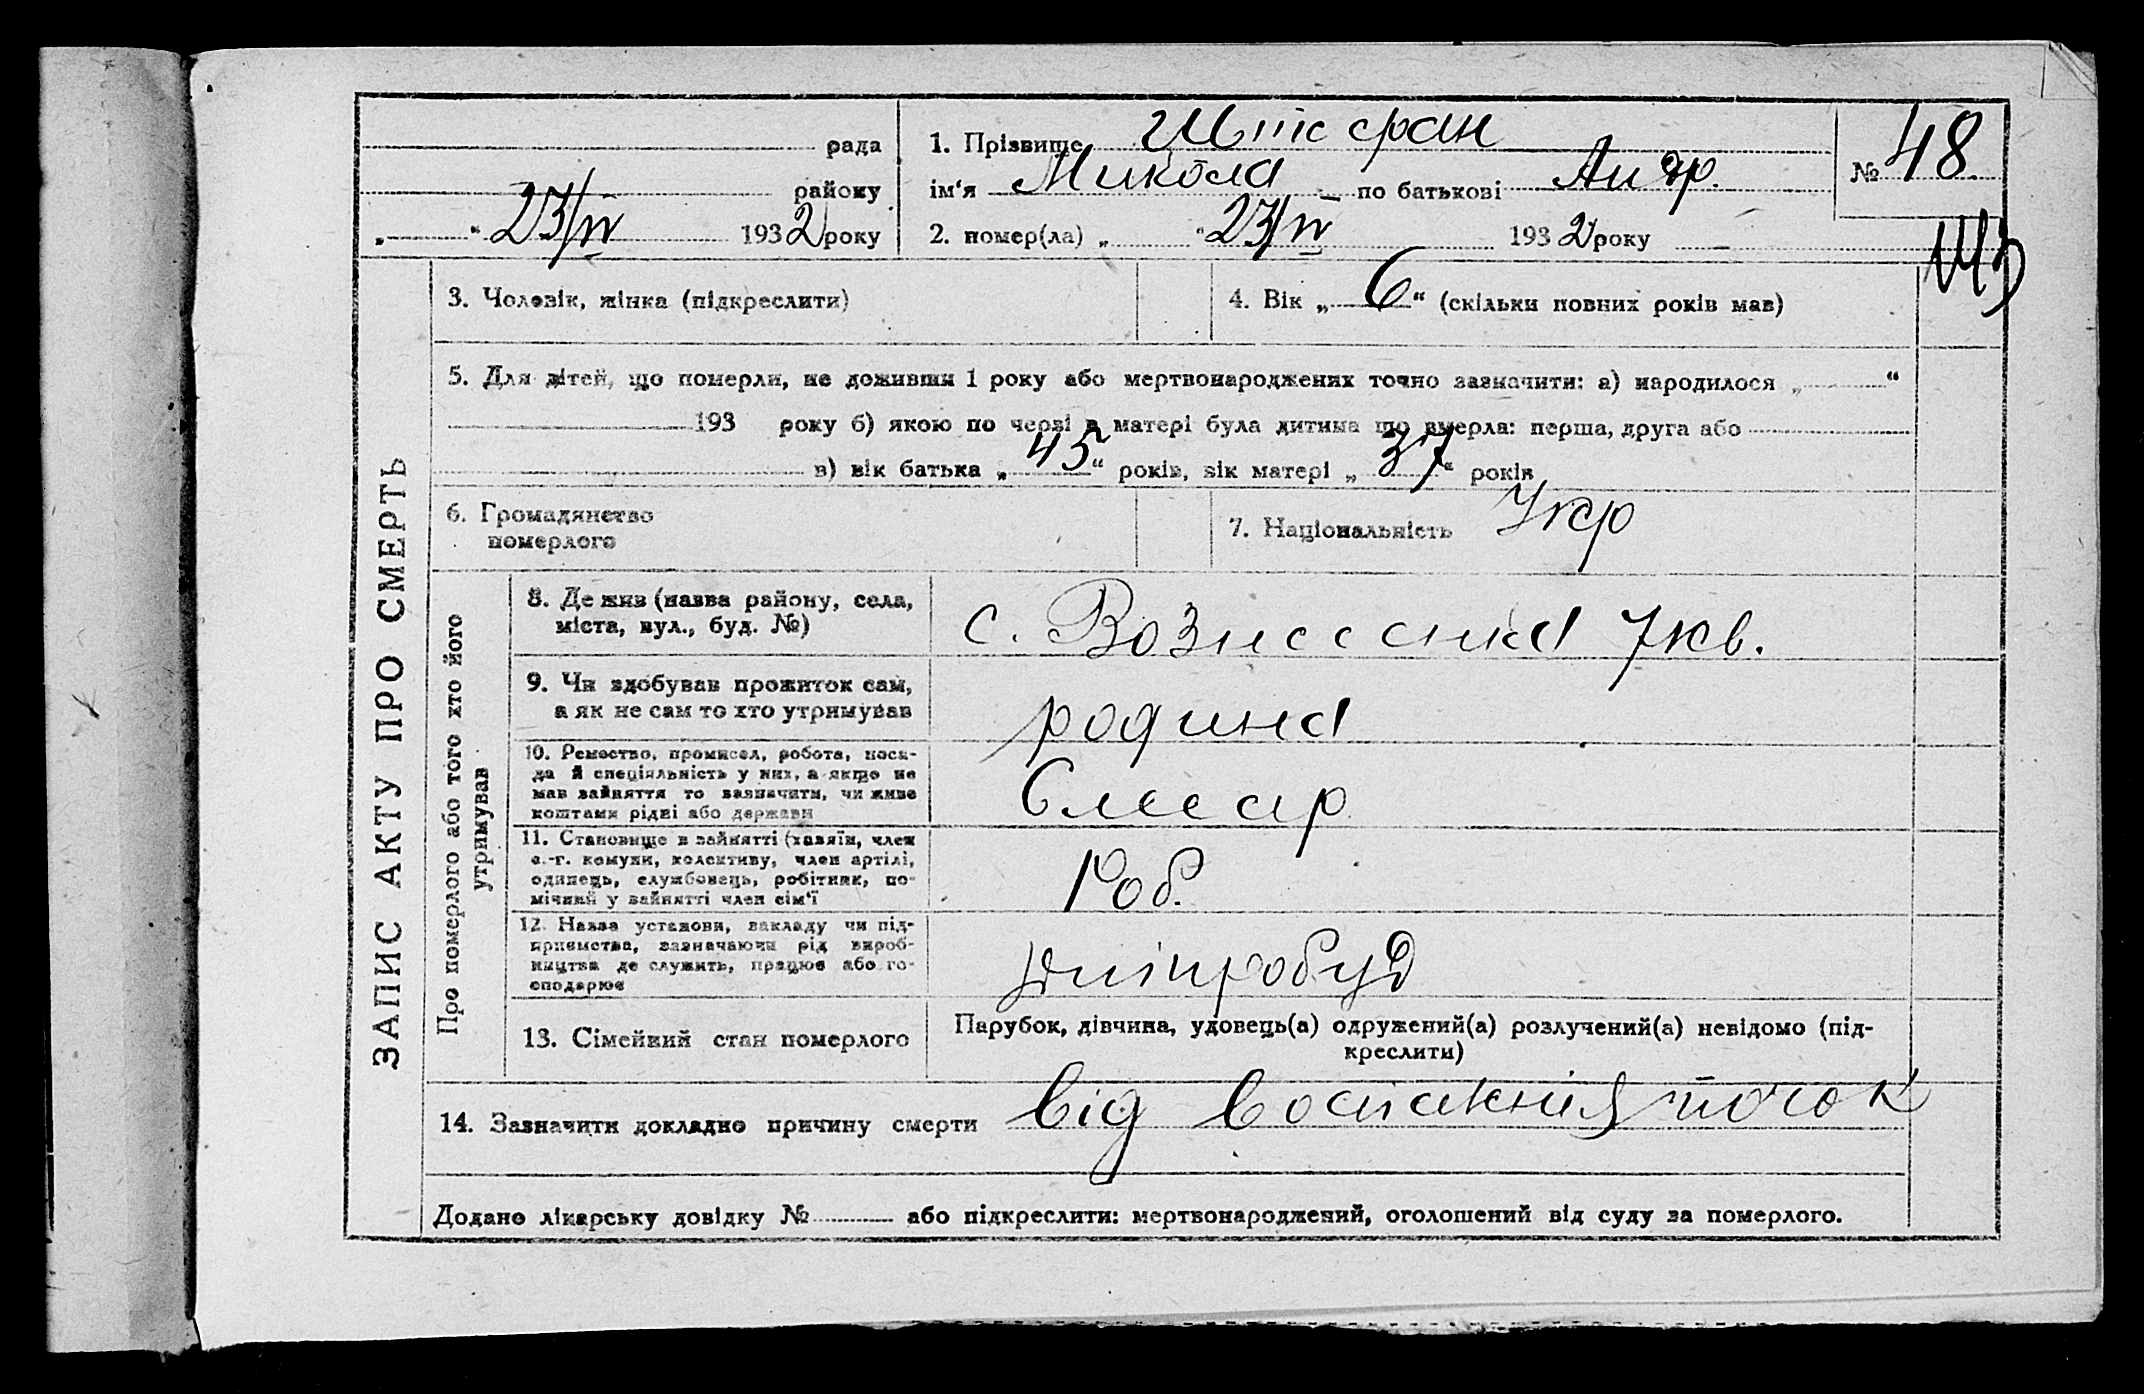 рада
району
„ “ 23/IV 1932 року
1. Прізвище Штефан
ім‘я Микола по батькові Андр.
2. помер(ла) „ “ 23/IV 1932 року
№ 48
ЗАПИС АКТУ ПРО СМЕРТЬ
3. Чоловік, жінка (підкреслити)
4. Вік „ 6 “ (скільки повних років мав)
5. Для дітей, що померли, не доживши 1 року або мертвонароджених точно зазначити: а) народилося „ “
193 року б) якою по черзі в матері була дитина що вмерла: перша, друга або
в) вік батька „ 45 “ років, вік матері „ 37 “ років
6. Громадянство
померлого
7. Національність Укр
Про померлого або того хто його
утримував
8. Де жив (назва району, села,
міста, вул., буд. №)
с. Вознесенка 7 кв.
9. Чи здобував прожиток сам,
а як не сам то хто утримував
родина
10. Ремество, промисел, робота, поса-
да й спеціяльність у них, а якщо не
мав зайняття то зазначити, чи живе
коштами рідні або держави
Слесар
11. Становище в зайнятті (хазяїн, член
с.-г. комуни, колективу, член артілі,
одинець, службовець, робітник, по-
мічний у зайнятті член сім‘ї
Роб.
12. Назва установи, закладу чи під-
приємства, зазначаючи рід вироб-
ництва де служить, працює або го-
сподарює
Дніпробуд
13. Сімейний стан померлого
Парубок, дівчина, удовець(а) одружений(а) розлучений(а) невідомо (під-
креслити)
14. Зазначити докладно причину смерти від почок
Додано лікарську довідку № або підкреслити: мертвонароджений, оголошений від суду за померлого.